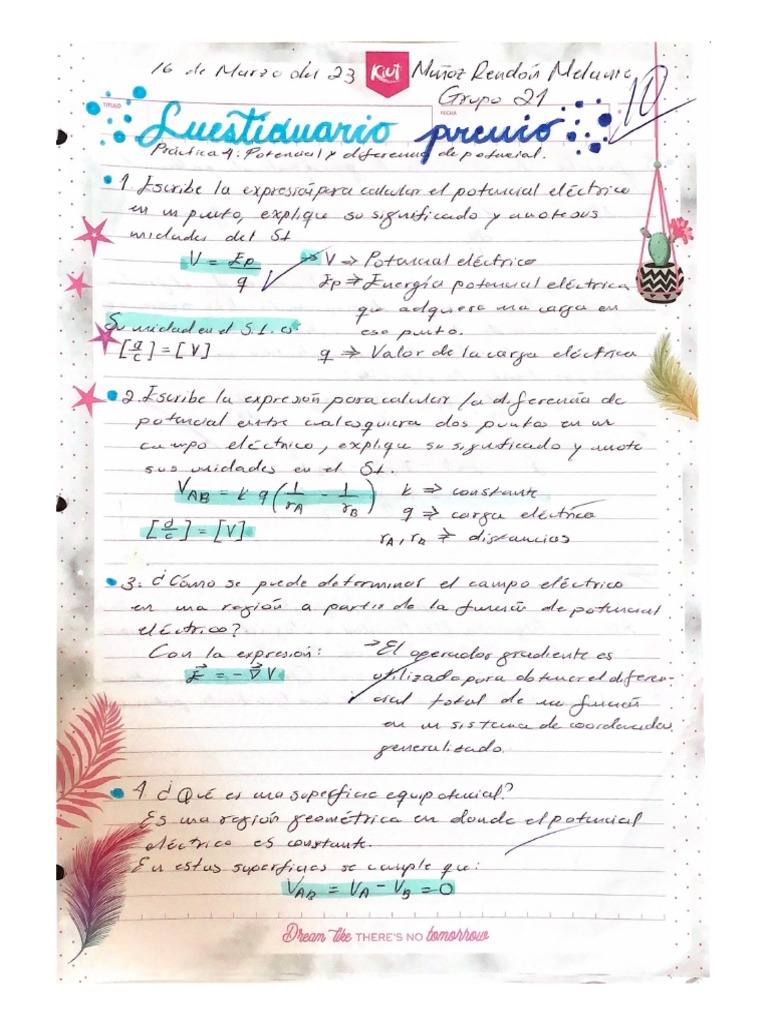 16 de Marzo del 23 KiUT Muñoz Rendón Melanie
Grupo 21
10
TÍTULO FECHA
Cuestionario previo
Práctica 4: Potencial y diferencia de potencial.
1. Escribe la expresión para calcular el potencial eléctrico
en un punto, explique su significado y anote sus
unidades del SI
V = Ep/q => V => Potencial eléctrico
Ep => Energía potencial eléctrica
que adquiere una carga en
ese punto.
Su unidad en el S.I. es:
[J/C] = [V] q => Valor de la carga eléctrica
2. Escribe la expresión para calcular la diferencia de
potencial entre cualesquiera dos puntos en un
campo eléctrico, explique su significado y anote
sus unidades en el SI.
V_AB = k q (1/r_A - 1/r_B) k => constante
q => carga eléctrica
[J/C] = [V] r_A, r_B => distancias
3. ¿Cómo se puede determinar el campo eléctrico
en una región a partir de la función de potencial
eléctrico?
Con la expresión: → El operador gradiente es
E⃗ = -∇⃗ V utilizado para obtener el diferen-
cial total de una función
en un sistema de coordenadas
generalizado.
4. ¿Qué es una superficie equipotencial?
Es una región geométrica en donde el potencial
eléctrico es constante.
En estas superficies se cumple que:
V_AB = V_A - V_B = 0
Dream like THERE'S NO tomorrow